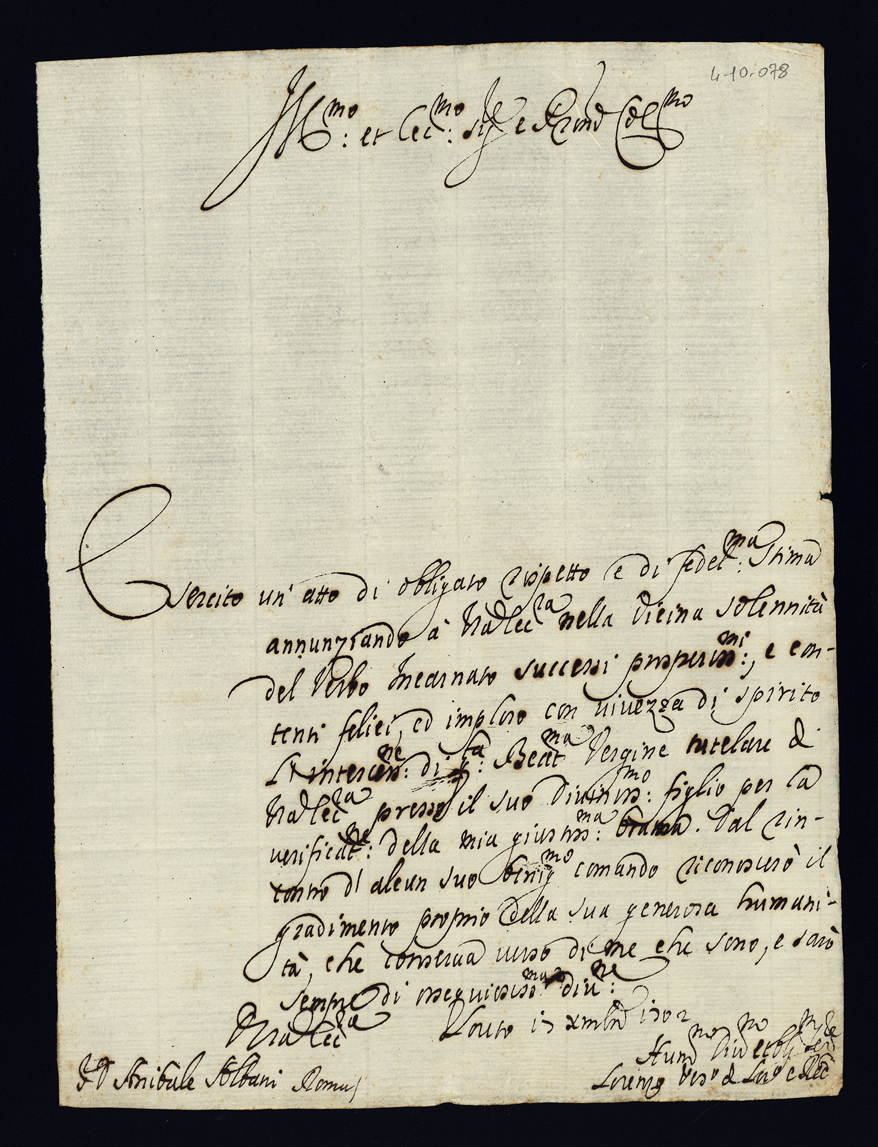 4-10-078
Ill^mo: et Ecc^mo: Sig^re e Pron Col^mo
Esercito un' atto di obligato rispetto e di fedel^ma: stima
annunziando à V̄rā Ecc^za nella vicina solennità
del Verbo Incarnato successi prosperiss^mi:, e con-
tenti felici, ed imploro con vivezza di spirito
l'interces^ne: di S^ta: Beat^ma Vergine tutelare di
V̄rā Ecc^za presso il suo diviniss^mo: figlio per la
verificat^ne: della mia giustiss^ma: brama. Dal rin-
contro di alcun suo benig^mo comando riconoscerò il
gradimento proprio della sua generosa humani-
tà, che conserva verso di me che sono, e sarò
sempre di ossequiosiss^ma div^ne:
D V̄rā Ecc^za
Loreto 17 Xmbre 1702
Hum^mo Div^mo et obl^mo Ser^re
Lorenzo Vesc^o di Lor^o e Rec^ti
D. Anibale Albani Roma